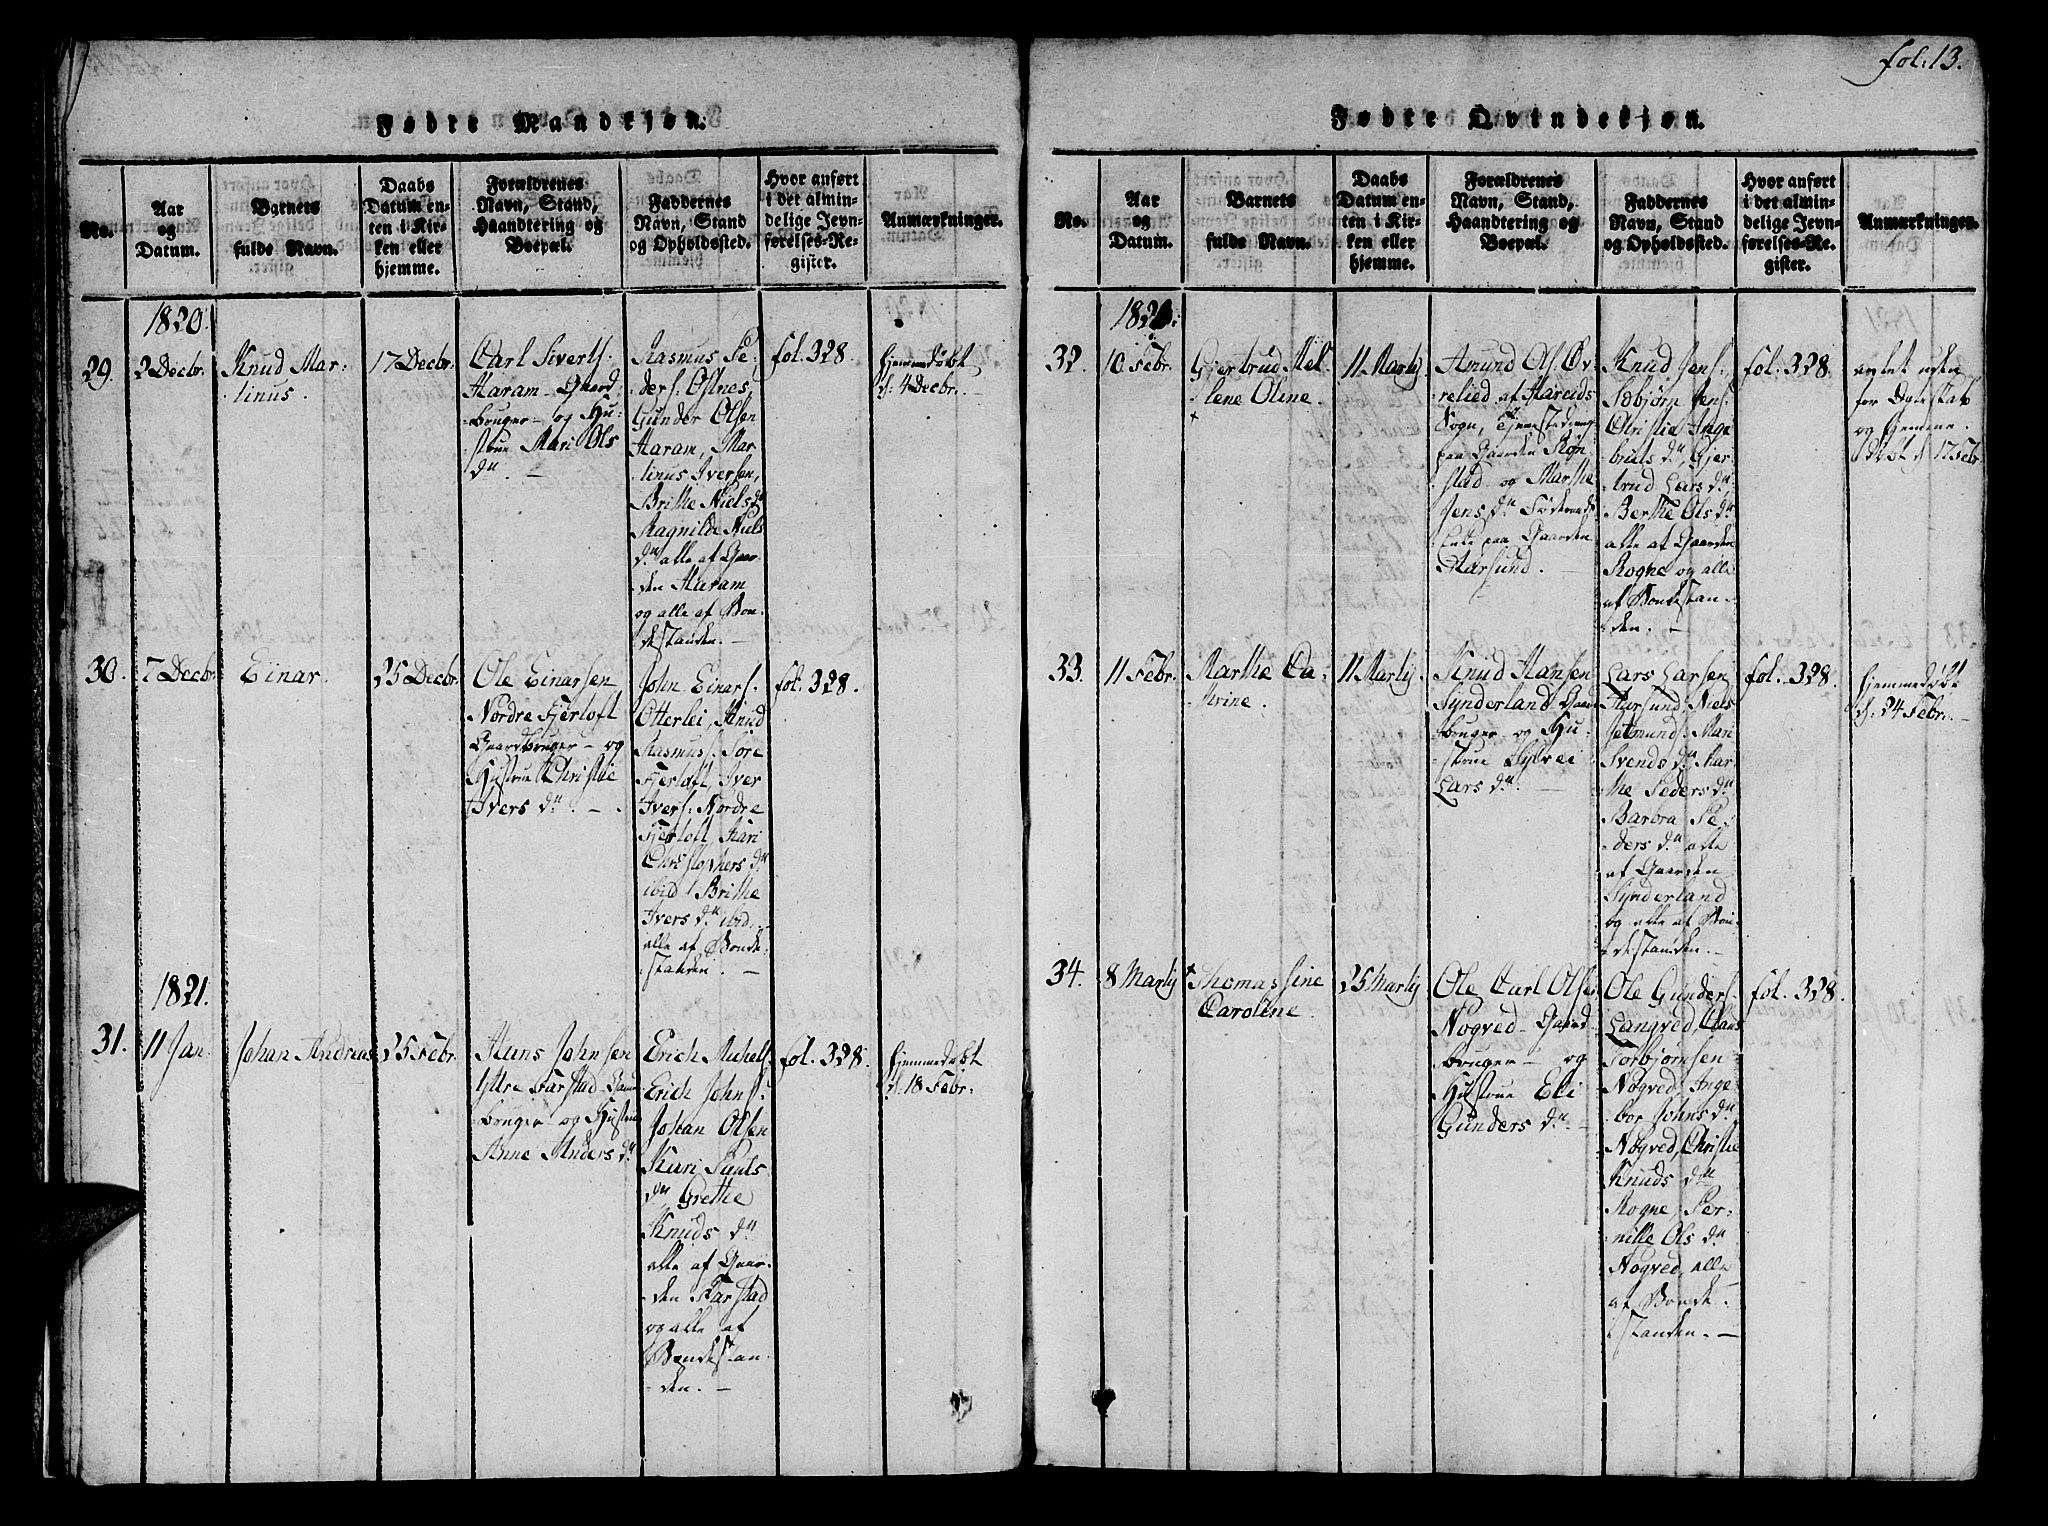 fol: 13.
Fødte Mandkjøn.
No.
Aar
og
Datum.
Barnets
fulde Navn.
Daabs
Datum en-
ten i Kir-
ken eller
hjemme.
Forældrenes
Navn, Stand,
Haandtering og
Boepæl.
Faddernes
Navn, Stand
og Opholdssted.
Hvor anført
i det almin-
delige Jevn-
førelses-Re-
gister.
Anmærkninger.
1820.
29.
2 Decbr.
Knud Mar-
tinus.
17 Decbr.
Carl Siverts.
Haram - Gaard-
bruger - og Hu-
stroe Mari Ols
dr. -
Rasmus Pe-
ders. Ostnes
Gunder Olsen
Haram, Mar-
tinus Iversen,
Brithe Niels dr
Ragnilde Niels
dr alle af Gaar-
den Haram
og alle af Bon-
destanden. -
fol. 328.
hjemmedøbt
d. 4 Decbr.
30.
7 Decbr.
Einar.
25 Decbr.
Ole Einarsen
Nordre Fjertoft
Gaardbruger - og
Hustroe Christie
Ivers dr. -
John Einars.
Otterlei, Knud
Rasmus. Søre
Fjertoft, Iver
Ivers. Nordre
Fjertoft, Kari
Christophers dr
ibid, Brithe
Ivers dr ibid,
alle af Bonde-
standen. -
fol. 328.
1821.
31.
11 Jan.
Johan Andreas
25 Febr.
Hans Johnsen
Yttre Farstad Gaard-
bruger og Hustroe
Anne Anders dr
Erich Michels.
Erich Johns.
Johan Olsen
Kari Pouls
dr Grethe
Knuds dr
alle af Gaar-
den Farstad
og alle af
Bondestan-
den. -
fol. 328.
hjemmedøbt
d. 18 Febr.
Fødte Qvindekjøn.
No.
Aar
og
Datum.
Barnets
fulde Navn.
Daabs
Datum en-
ten i Kir-
ken eller
hjemme.
Forældrenes
Navn, Stand,
Haandtering og
Boepæl.
Faddernes
Navn, Stand
og Opholdssted.
Hvor anført
i det almin-
delige Jevn-
førelses-Re-
gister.
Anmærkninger.
1821.
32.
10 Febr.
Gjertrud Hel-
lene Oline.
11 Martii
Amund Ols. Øv-
relied af Hareids
Sogn, Tjenestedreng
paa Gaarden Røn-
stad og Marthe
Jens dr Føderaads-
paa Gaarden
Harsund. -
Knud Jens.
Sebjørn Jens.
Christie Inge-
briets dr Gjer-
trud Lars dr
Berthe Ols dr
alle af Gaarden
Rogne og alle
af Bondestan-
den. -
fol. 328.
avlet uden
for Ægteskab
og hjemme-
døbt d. 17 Febr.
33.
11 Febr.
Marthe Ca-
thrine.
11 Martii.
Knud Hansen
Synderland Gaard-
bruger og Hu-
stroe Sylvei
Lars dr. -
Lars Larsen
Harsund, Niels
Jetmund. Mari
Svends dr Mar-
the Peders dr
Barbra Pe-
ders dr alle
af Gaarden
Synderland
og alle af Bon-
destanden. -
fol. 328.
hjemmedøbt
d. 24 Febr. -
34.
8 Martii
Thomassine
Caroline.
25 Martii
Ole Carl Ols.
Nogved - Gaard-
bruger - og
Hustroe Eli
Gunders dr. -
Ole Gunders.
Langved, Claus
Torbjørnsen
Nogved, Inge-
bor Johns dr
Nogved, Christie
Knuds dr
Rogne, Per-
nille Ols dr
Nogved, alle
af Bonde-
standen. -
fol. 328.